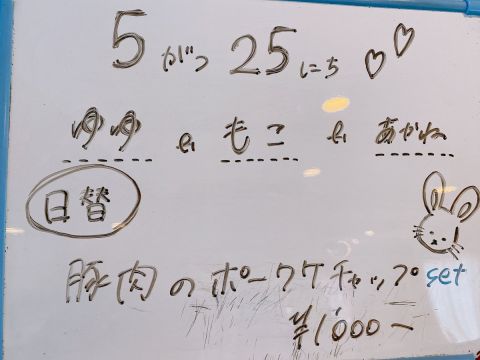 5がつ25にち♡♡
ゆゆ & もこ & あかね
日替
豚肉のポークケチャップset
¥1000-